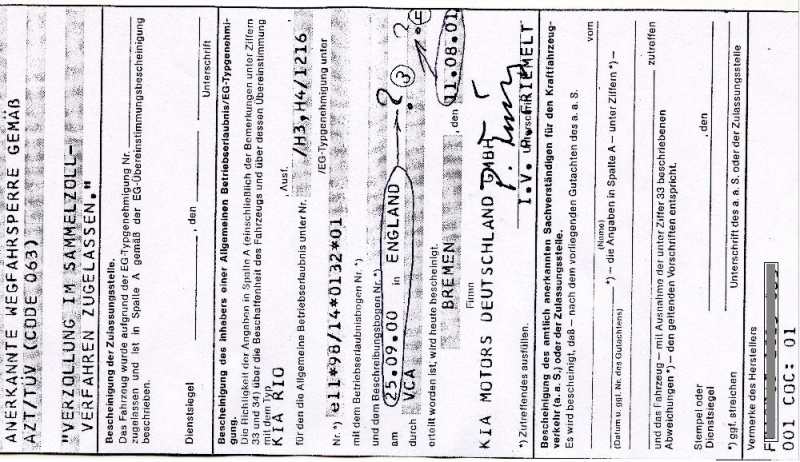 ANERKANNTE WEGFAHRSPERRE GEMÄß
AZT/TÜV (CODE 063)
"VERZOLLUNG IM SAMMELZOLL-
VERFAHREN ZUGELASSEN."
Bescheinigung der Zulassungsstelle.
Das Fahrzeug wurde aufgrund der EG-Typgenehmigung Nr.
zugelassen und ist in Spalte A gemäß der EG-Übereinstimmungsbescheinigung
beschrieben.
, den
Dienstsiegel Unterschrift
Bescheinigung des Inhabers einer Allgemeinen Betriebserlaubnis/EG-Typgenehmi-
gung.
Die Richtigkeit der Angaben in Spalte A (einschließlich der Bemerkungen unter Ziffern
33 und 34) über die Beschaffenheit des Fahrzeugs und über dessen Übereinstimmung
mit dem Typ
KIA RIO , Ausf. /H3,H4/1216
für den die Allgemeine Betriebserlaubnis unter Nr. /EG-Typgenehmigung unter
Nr. *) e11*98/14*0132*01
mit dem Betriebserlaubnisbogen Nr. *)
und dem Beschreibungsbogen Nr. *)
am 25.09.00 in ENGLAND ?
durch VCA ? 3
erteilt worden ist, wird heute bescheinigt.
BREMEN , den 11.08.01
Firma
KIA MOTORS DEUTSCHLAND GMBH
Unterschrift
I.V. FRIEMELT
*) Zutreffendes ausfüllen.
Bescheinigung des amtlich anerkannten Sachverständigen für den Kraftfahrzeug-
verkehr (a. a. S.) oder der Zulassungsstelle.
Es wird bescheinigt, daß – nach dem vorliegenden Gutachten des a. a. S.
vom
(Name)
*) – die Angaben in Spalte A – unter Ziffern *) –
(Datum u. ggf. Nr. des Gutachtens)
zutreffen
und das Fahrzeug – mit Ausnahme der unter Ziffer 33 beschriebenen
Abweichungen *) – den geltenden Vorschriften entspricht.
, den
Stempel oder
Dienstsiegel
Unterschrift des a. a. S. oder der Zulassungsstelle
*) ggf. streichen
Vermerke des Herstellers
001 COC: 01